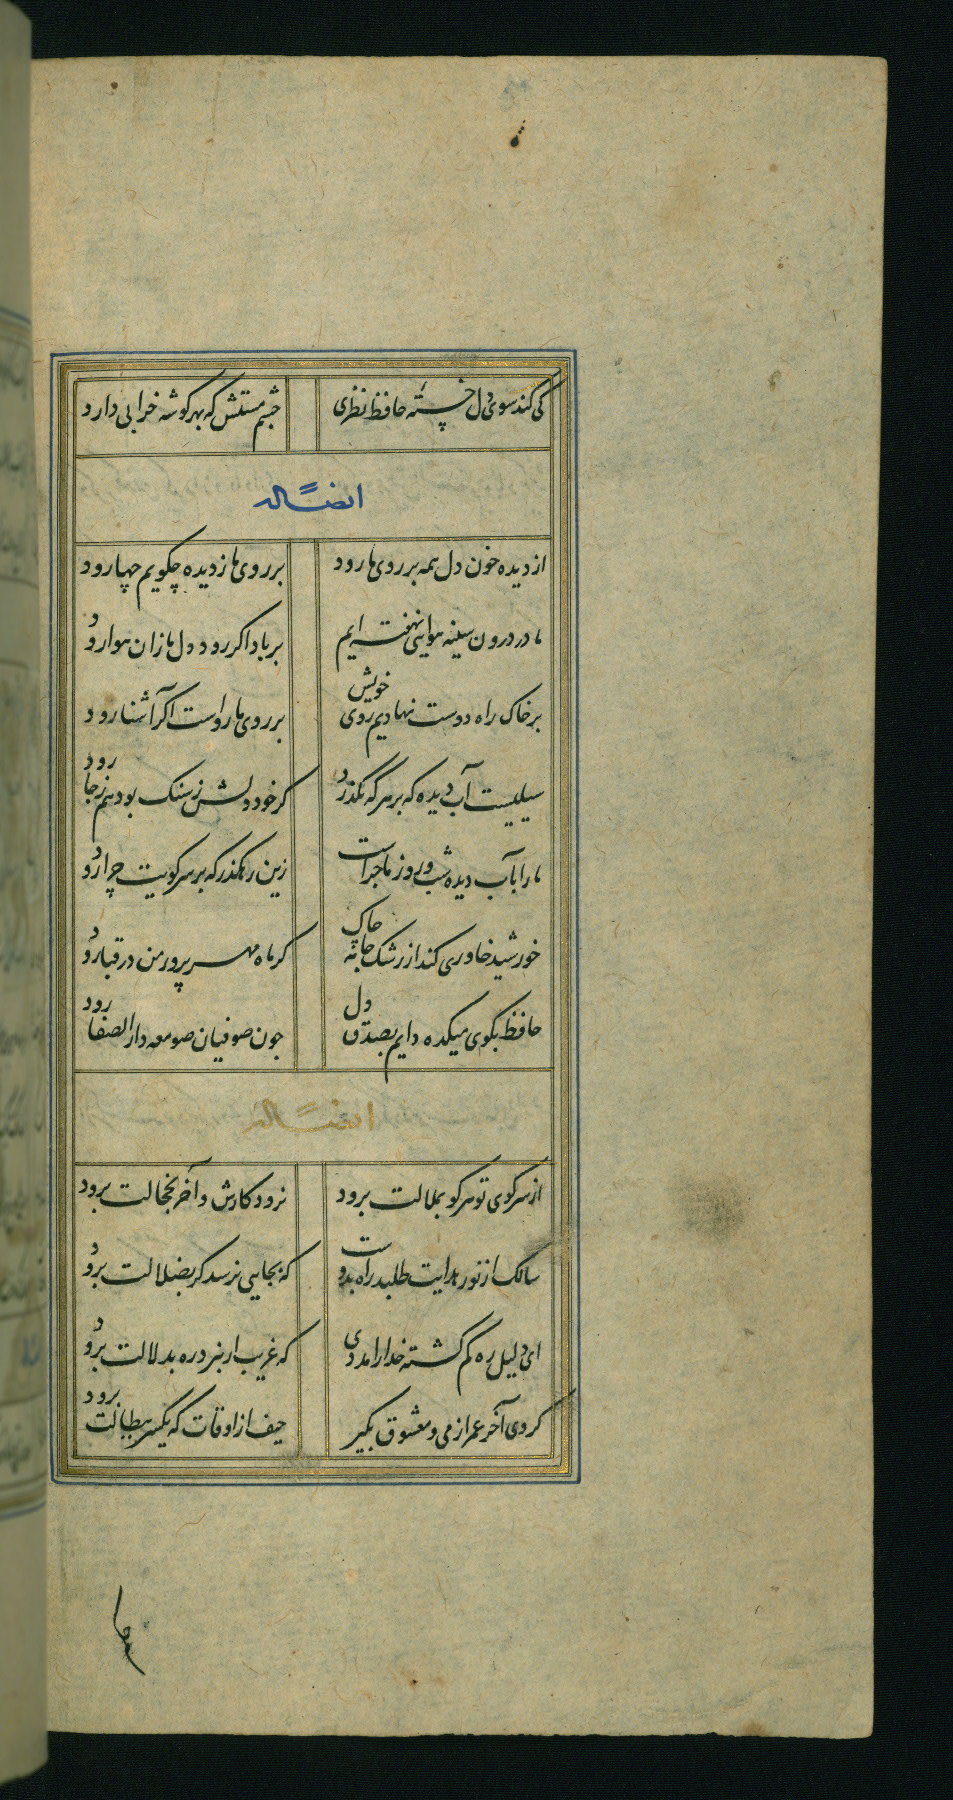 کی کند سوی دل خستهٔ حافظ نظری
چشم مستش که بهر کوشه خرابی دارد
ایضاً له
از دیده خون دل همه بر روی ما رود
بر روی ما ز دیده چکویم چها رود
ما در درون سینه هوایی نهفته ایم
بر باد اکر رود دل ما زان هوا رود
بر خاک راه دوست نهادیم روی خویش
بر روی ما رواست اکر آشنا رود
سیلیست آب دیده که بر هر که بگذرد
کر خود دلش ز سنک بود هم ز جا رود
ما را بآب دیده شب و روز ماجراست
زین رهکذر که بر سر کویت چرا رود
خورشید خاوری کند از رشک جامه چاک
کر ماه مهر پرور من در قبا رود
حافظ بکوی میکده دایم بصدق دل
چون صوفیان صومعه دار الصفا رود
ایضاً له
از سر کوی تو هر کو بملالت برود
نرود کارش و آخر بخجالت برود
سالک از نور هدایت طلبد راه بدوست
که بجایی نرسد کر بضلالت برود
ای دلیل ره کم کشته خدا را مددی
که غریب ار نبرد ره بدلالت برود
کروی آخر عمر از می و معشوق بگیر
حیف از اوقات که یکسر ببطالت برود